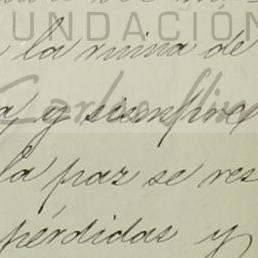 FUNDACIÓN
la ruina de
y siempre
la paz se res
pérdidas y